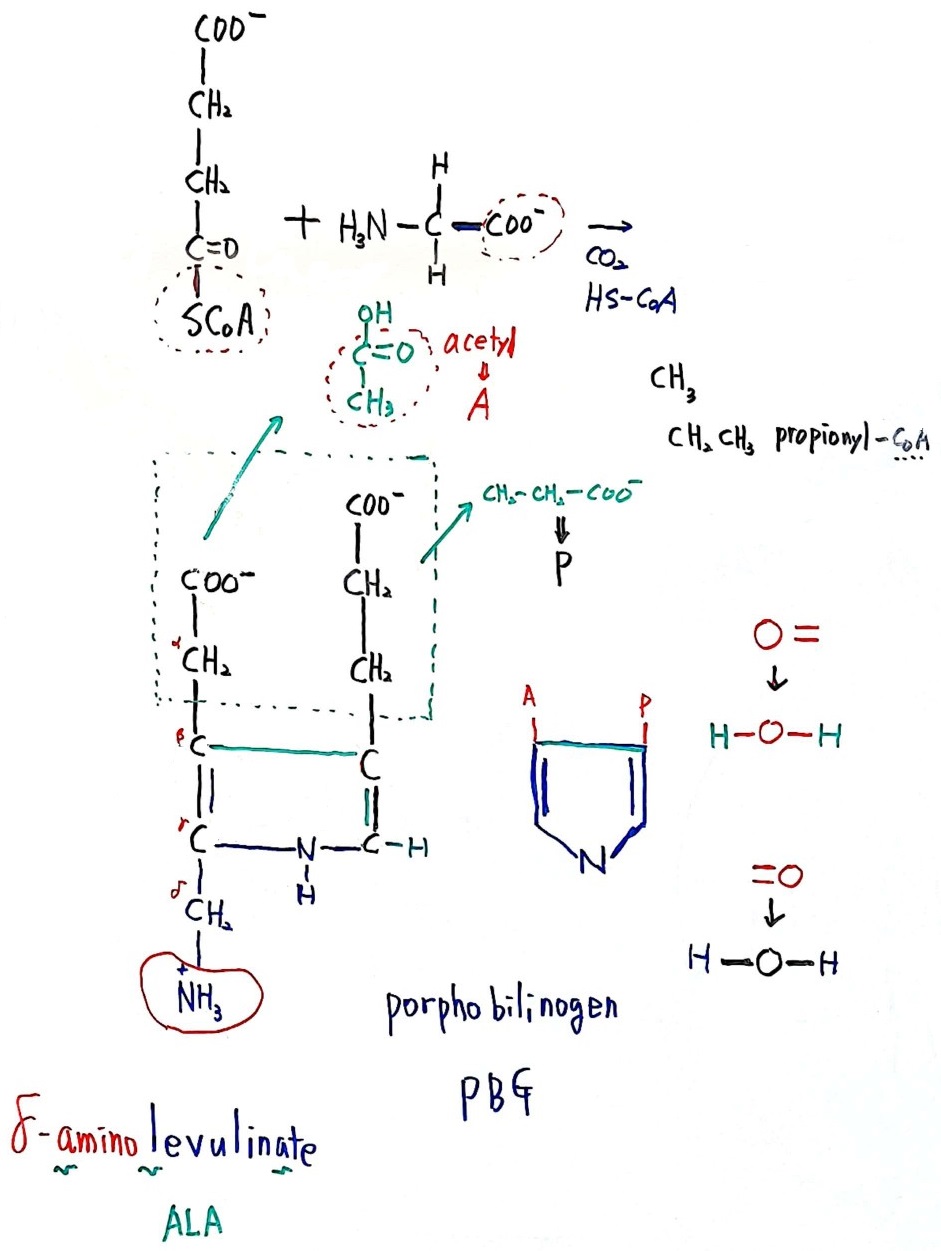 COO⁻
CH₂
CH₂
C=O
SCoA
+
H
H₃N-C-COO⁻
H
→
CO₂
HS-CoA
OH
C=O
CH₃
acetyl
⇓
A
CH₃
CH₂CH₃ propionyl-CoA
COO⁻
CH₂
CH₂
CH₂-CH₂-COO⁻
⇓
P
COO⁻
α CH₂
β C
C
γ C
N
H
C-H
δ CH₂
+
NH₃
A
P
N
O=
↓
H-O-H
=O
↓
H-O-H
porphobilinogen
PBG
δ-aminolevulinate
ALA